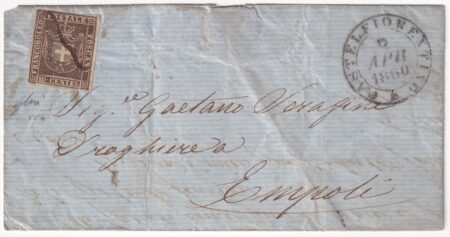 FRANCOBOLLO
POSTALE
TOSCANO
10 CENTES
CASTELFIORENTINO
5
APR
1860
Sig.re Gaetano Serafini
Droghiere a
Empoli